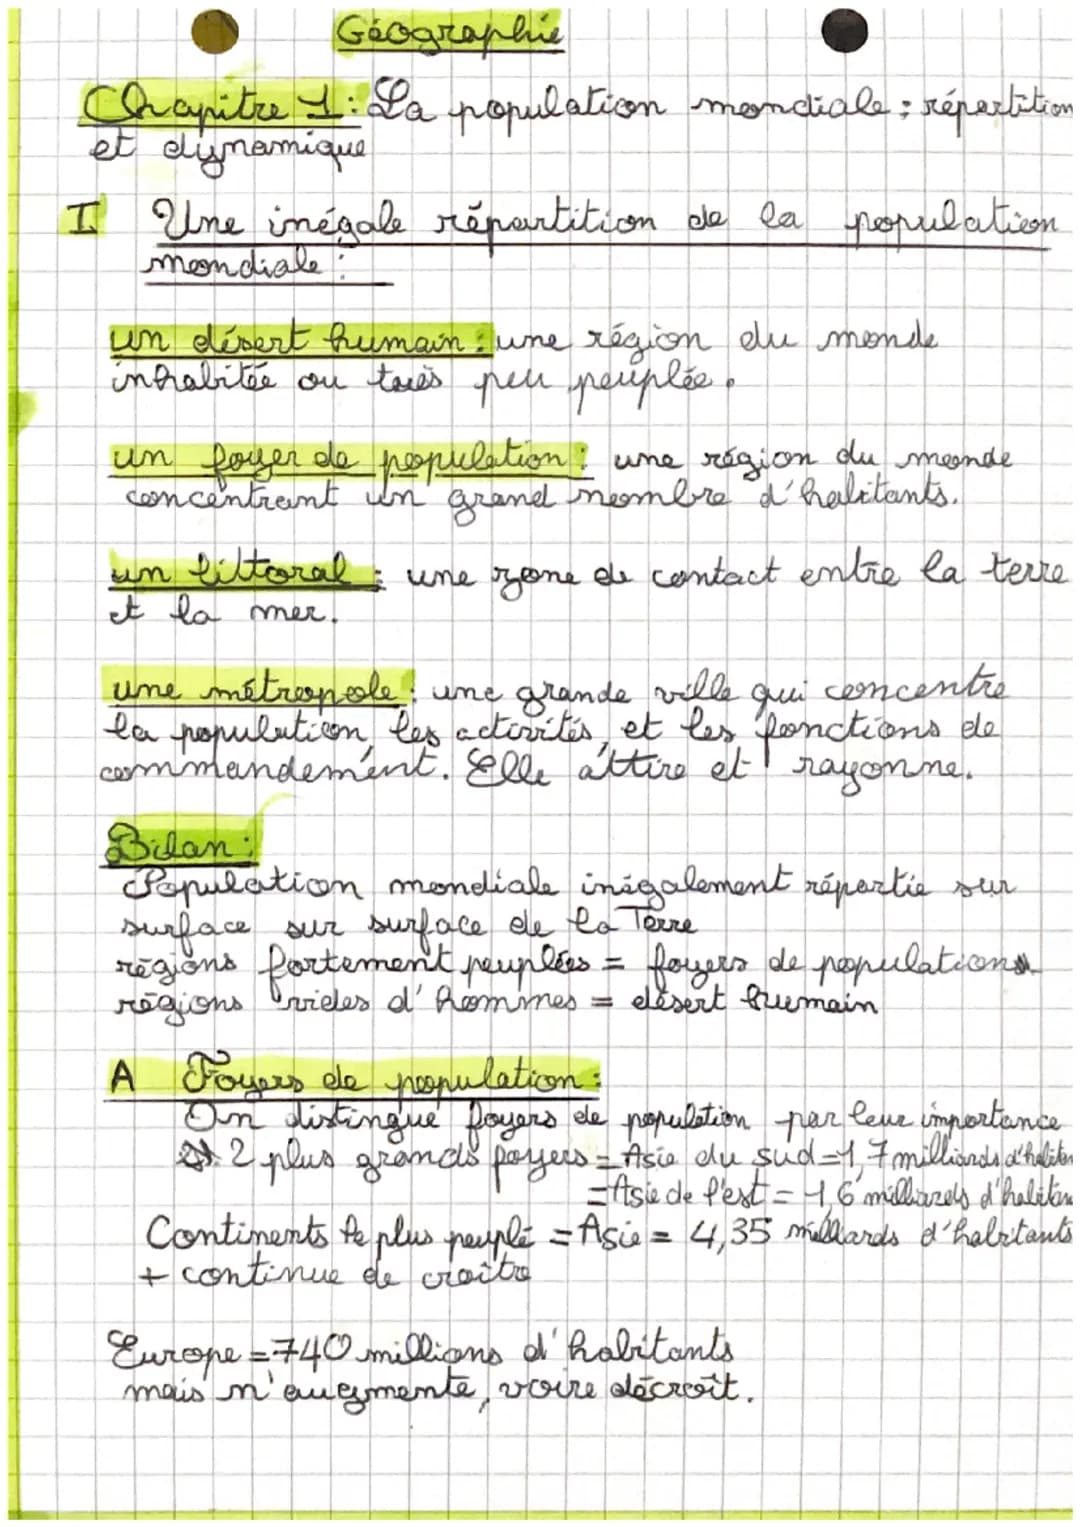 Géographie
Chapitre 1: La population mondiale : répartition
et dynamique
I Une inégale répartition de la population
mondiale :
un désert humain : une région du monde
inhabitée ou très peu peuplée.
un foyer de population : une région du monde
concentrant un grand nombre d'habitants.
un littoral : une zone de contact entre la terre
et la mer.
une métropole : une grande ville qui concentre
la population, les activités, et les fonctions de
commandement. Elle attire et rayonne.
Bilan :
Population mondiale inégalement répartie sur
surface sur surface de la Terre
régions fortement peuplées = foyers de populations
régions vides d'hommes = désert humain
A Foyers de population :
On distingue foyers de population par leur importance
2 plus grands foyers = Asie du sud = 1,7 milliards d'habitan
= Asie de l'est = 1,6 milliards d'habitan
Continents le plus peuplé = Asie = 4,35 milliards d'habitants
+ continue de croître
Europe = 740 millions d'habitants
mais n'augmente, voire décroît.